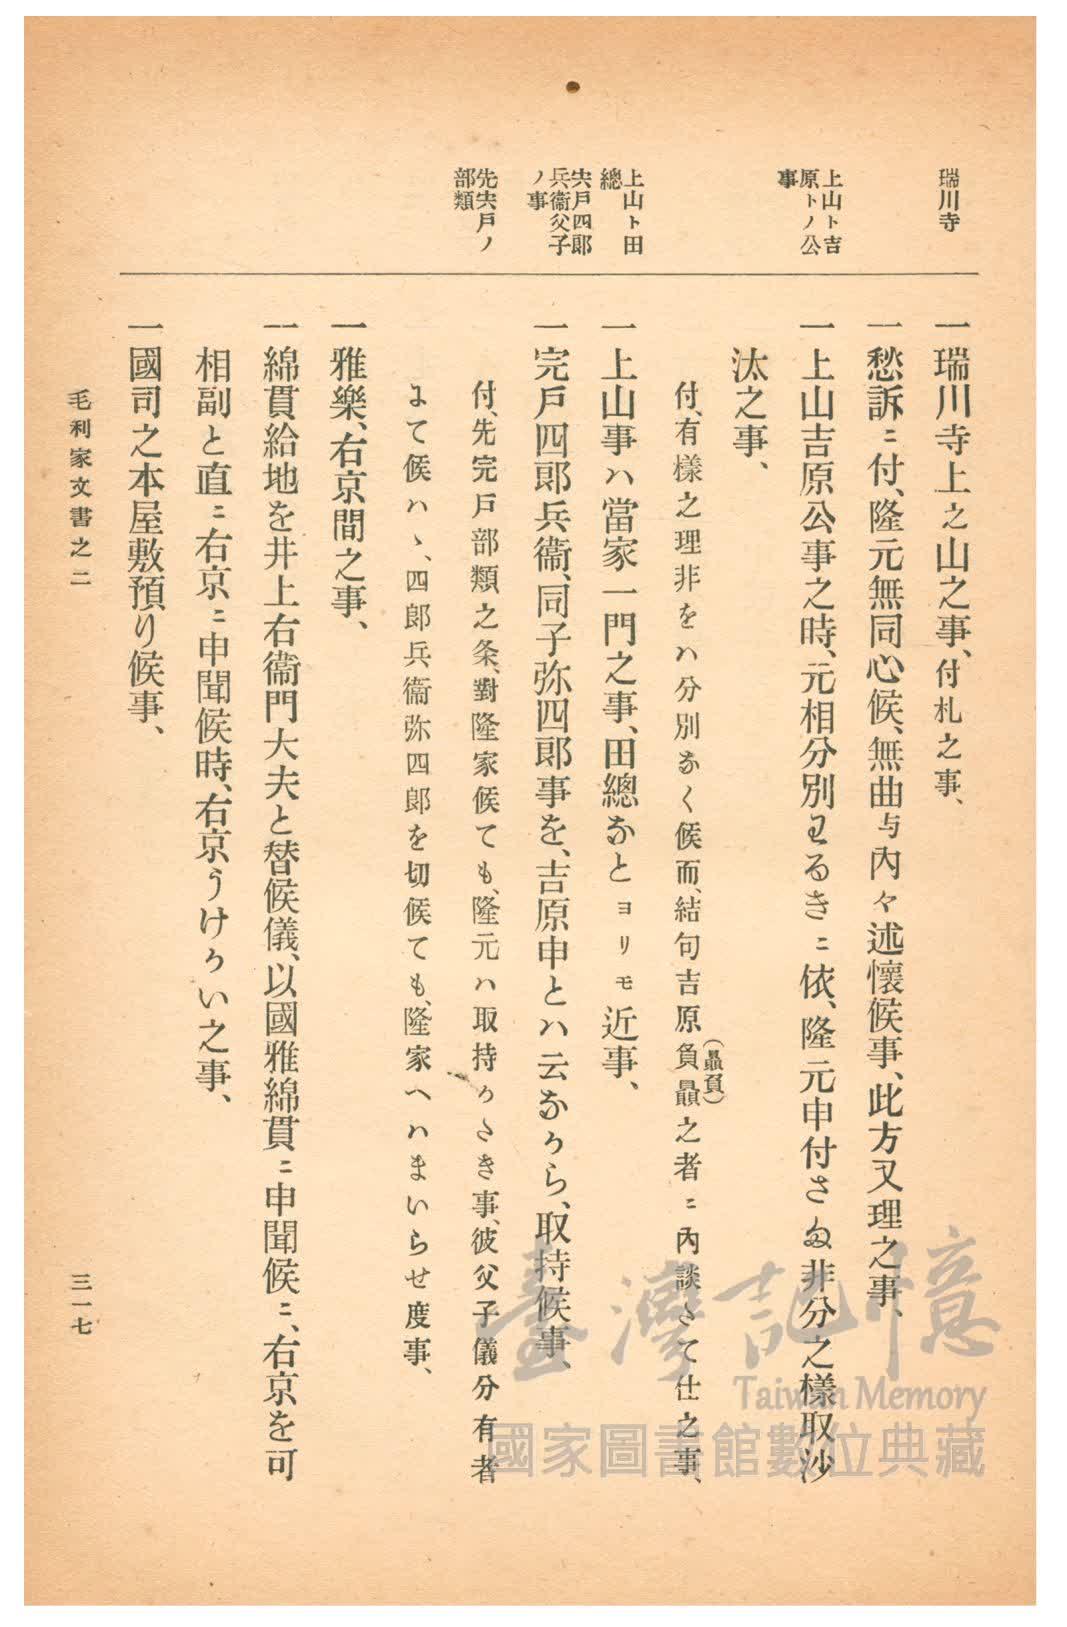 瑞川寺
一瑞川寺上之山之事、付札之事、
一愁訴ニ付、隆元無同心候、無曲与內々述懷候事、此方又理之事、
上山ト吉
原トノ公
事
一上山吉原公事之時、元相分別わるきニ依、隆元申付さ(ま)非分之樣取沙
汰之事、
付、有樣之理非をハ分別なく候而、結句吉原負贔之者ニ內談さて仕之事、
(贔負)
上山ト田
總
一上山事ハ當家一門之事、田總なとヨリモ近事、
宍戶四郞
兵衞父子
ノ事
一完戶四郞兵衞、同子弥四郞事を、吉原申とハ云なから、取持候事、
先宍戶ノ
部類
付、先完戶部類之条、對隆家候ても、隆元ハ取持かさき事、彼父子儀分有者
まて候ハヽ、四郞兵衞弥四郞を切候ても、隆家へハまいらせ度事、
一雅樂、右京間之事、
一綿貫給地を井上右衞門大夫と替候儀、以國雅綿貫ニ申聞候ニ、右京を可
相副と直ニ右京ニ申聞候時、右京うけかい之事、
一國司之本屋敷預り候事、
毛利家文書之二
三一七
臺灣記憶
Taiwan Memory
國家圖書館數位典藏